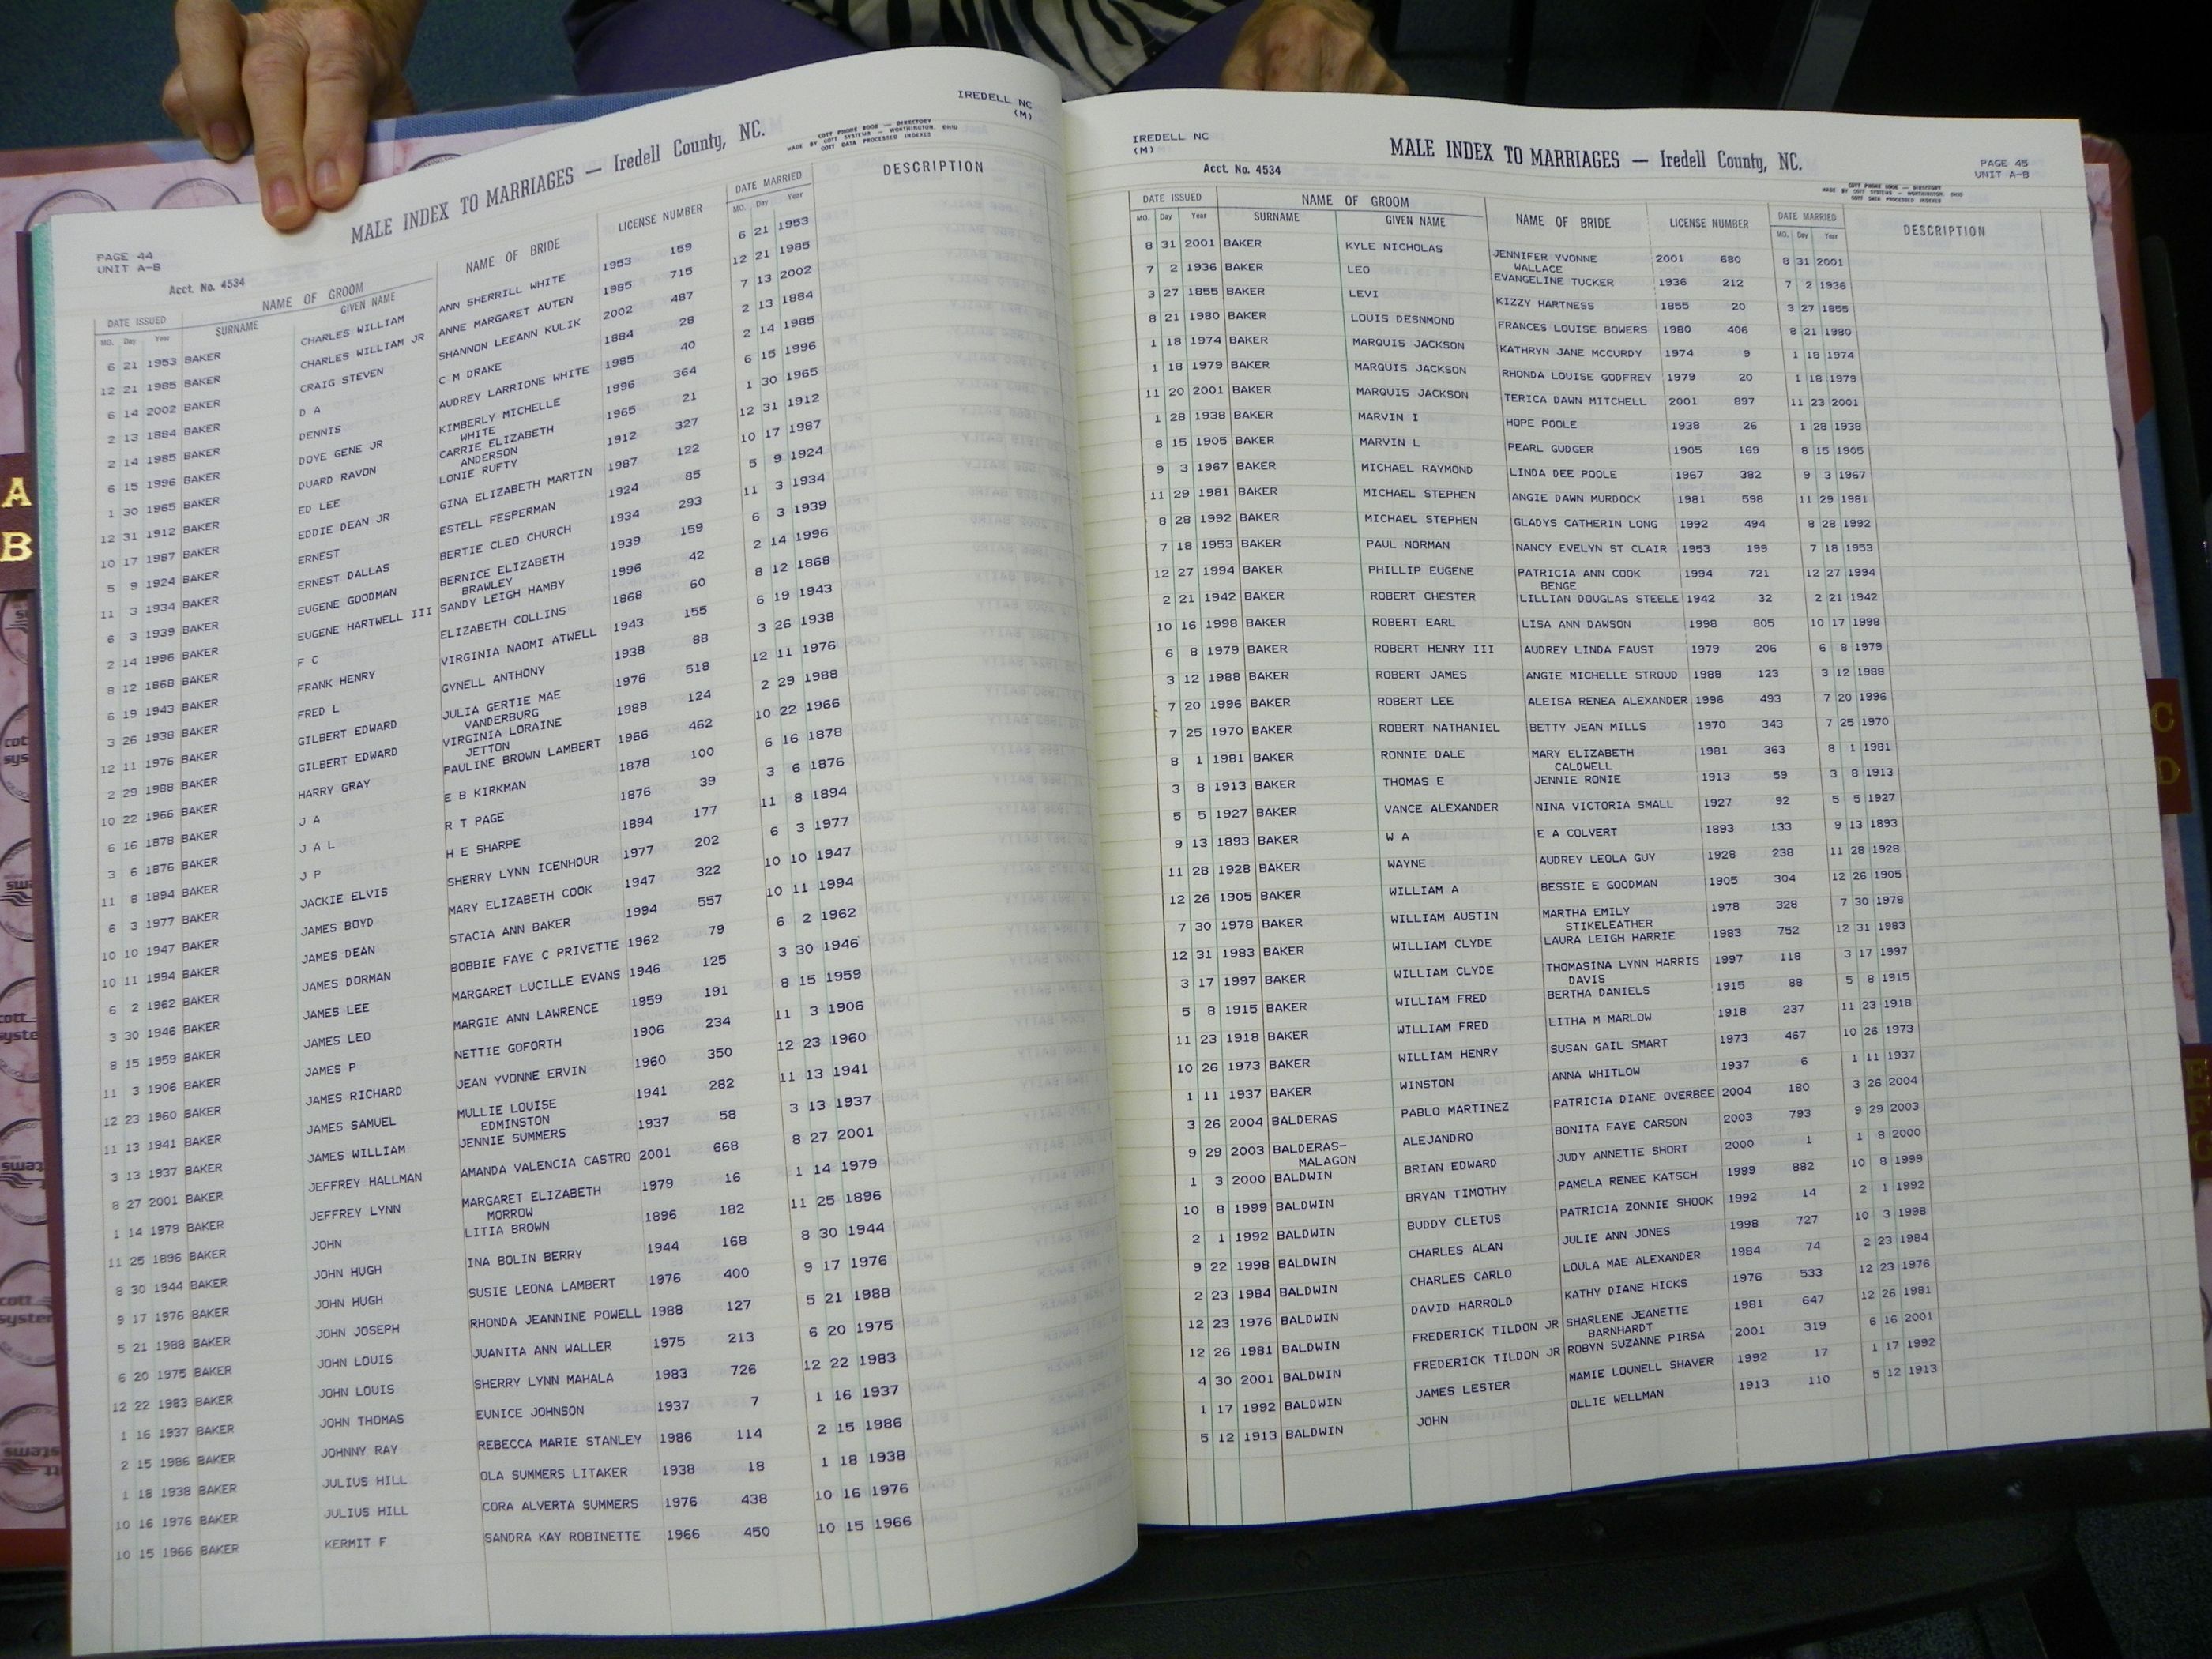 IREDELL NC
(M)
MALE INDEX TO MARRIAGES — Iredell County, NC.
COTT PHONE BOOK — DIRECTORY
MADE BY COTT SYSTEMS — WORTHINGTON, OHIO
COTT DATA PROCESSED INDEXES
PAGE 44
UNIT A-B
Acct. No. 4534
DATE ISSUED NAME OF GROOM NAME OF BRIDE LICENSE NUMBER DATE MARRIED DESCRIPTION
MO. Day Year SURNAME GIVEN NAME MO. Day Year
6 21 1953 BAKER CHARLES WILLIAM ANN SHERRILL WHITE 1953 159 6 21 1953
12 21 1985 BAKER CHARLES WILLIAM JR ANNE MARGARET AUTEN 1985 715 12 21 1985
6 14 2002 BAKER CRAIG STEVEN SHANNON LEEANN KULIK 2002 487 7 13 2002
2 13 1884 BAKER D A C M DRAKE 1884 28 2 13 1884
2 14 1985 BAKER DENNIS AUDREY LARRIONE WHITE 1985 40 2 14 1985
6 15 1996 BAKER DOYE GENE JR KIMBERLY MICHELLE 1996 364 6 15 1996
WHITE
1 30 1965 BAKER DUARD RAVON CARRIE ELIZABETH 1965 21 1 30 1965
ANDERSON
12 31 1912 BAKER ED LEE LONIE RUFTY 1912 327 12 31 1912
10 17 1987 BAKER EDDIE DEAN JR GINA ELIZABETH MARTIN 1987 122 10 17 1987
5 9 1924 BAKER ERNEST ESTELL FESPERMAN 1924 85 5 9 1924
11 3 1934 BAKER ERNEST DALLAS BERTIE CLEO CHURCH 1934 293 11 3 1934
6 3 1939 BAKER EUGENE GOODMAN BERNICE ELIZABETH 1939 159 6 3 1939
BRAWLEY
2 14 1996 BAKER EUGENE HARTWELL III SANDY LEIGH HAMBY 1996 42 2 14 1996
8 12 1868 BAKER F C ELIZABETH COLLINS 1868 60 8 12 1868
6 19 1943 BAKER FRANK HENRY VIRGINIA NAOMI ATWELL 1943 155 6 19 1943
3 26 1938 BAKER FRED L GYNELL ANTHONY 1938 88 3 26 1938
12 11 1976 BAKER GILBERT EDWARD JULIA GERTIE MAE 1976 518 12 11 1976
VANDERBURG
2 29 1988 BAKER GILBERT EDWARD VIRGINIA LORAINE 1988 124 2 29 1988
JETTON
10 22 1966 BAKER HARRY GRAY PAULINE BROWN LAMBERT 1966 462 10 22 1966
6 16 1878 BAKER J A E B KIRKMAN 1878 100 6 16 1878
3 6 1876 BAKER J A L R T PAGE 1876 39 3 6 1876
11 8 1894 BAKER J P H E SHARPE 1894 177 11 8 1894
6 3 1977 BAKER JACKIE ELVIS SHERRY LYNN ICENHOUR 1977 202 6 3 1977
10 10 1947 BAKER JAMES BOYD MARY ELIZABETH COOK 1947 322 10 10 1947
10 11 1994 BAKER JAMES DEAN STACIA ANN BAKER 1994 557 10 11 1994
6 2 1962 BAKER JAMES DORMAN BOBBIE FAYE C PRIVETTE 1962 79 6 2 1962
3 30 1946 BAKER JAMES LEE MARGARET LUCILLE EVANS 1946 125 3 30 1946
8 15 1959 BAKER JAMES LEO MARGIE ANN LAWRENCE 1959 191 8 15 1959
11 3 1906 BAKER JAMES P NETTIE GOFORTH 1906 234 11 3 1906
12 23 1960 BAKER JAMES RICHARD JEAN YVONNE ERVIN 1960 350 12 23 1960
11 13 1941 BAKER JAMES SAMUEL MULLIE LOUISE 1941 282 11 13 1941
EDMINSTON
3 13 1937 BAKER JAMES WILLIAM JENNIE SUMMERS 1937 58 3 13 1937
8 27 2001 BAKER JEFFREY HALLMAN AMANDA VALENCIA CASTRO 2001 668 8 27 2001
1 14 1979 BAKER JEFFREY LYNN MARGARET ELIZABETH 1979 16 1 14 1979
MORROW
11 25 1896 BAKER JOHN LITIA BROWN 1896 182 11 25 1896
8 30 1944 BAKER JOHN HUGH INA BOLIN BERRY 1944 168 8 30 1944
9 17 1976 BAKER JOHN HUGH SUSIE LEONA LAMBERT 1976 400 9 17 1976
5 21 1988 BAKER JOHN JOSEPH RHONDA JEANNINE POWELL 1988 127 5 21 1988
6 20 1975 BAKER JOHN LOUIS JUANITA ANN WALLER 1975 213 6 20 1975
12 22 1983 BAKER JOHN LOUIS SHERRY LYNN MAHALA 1983 726 12 22 1983
1 16 1937 BAKER JOHN THOMAS EUNICE JOHNSON 1937 7 1 16 1937
2 15 1986 BAKER JOHNNY RAY REBECCA MARIE STANLEY 1986 114 2 15 1986
1 18 1938 BAKER JULIUS HILL OLA SUMMERS LITAKER 1938 18 1 18 1938
10 16 1976 BAKER JULIUS HILL CORA ALVERTA SUMMERS 1976 438 10 16 1976
10 15 1966 BAKER KERMIT F SANDRA KAY ROBINETTE 1966 450 10 15 1966
IREDELL NC
(M)
MALE INDEX TO MARRIAGES — Iredell County, NC.
PAGE 45
UNIT A-B
Acct. No. 4534
COTT PHONE BOOK — DIRECTORY
MADE BY COTT SYSTEMS — WORTHINGTON, OHIO
COTT DATA PROCESSED INDEXES
DATE ISSUED NAME OF GROOM NAME OF BRIDE LICENSE NUMBER DATE MARRIED DESCRIPTION
MO. Day Year SURNAME GIVEN NAME MO. Day Year
8 31 2001 BAKER KYLE NICHOLAS JENNIFER YVONNE 2001 680 8 31 2001
WALLACE
7 2 1936 BAKER LEO EVANGELINE TUCKER 1936 212 7 2 1936
3 27 1855 BAKER LEVI KIZZY HARTNESS 1855 20 3 27 1855
8 21 1980 BAKER LOUIS DESNMOND FRANCES LOUISE BOWERS 1980 406 8 21 1980
1 18 1974 BAKER MARQUIS JACKSON KATHRYN JANE MCCURDY 1974 9 1 18 1974
1 18 1979 BAKER MARQUIS JACKSON RHONDA LOUISE GODFREY 1979 20 1 18 1979
11 20 2001 BAKER MARQUIS JACKSON TERICA DAWN MITCHELL 2001 897 11 23 2001
1 28 1938 BAKER MARVIN I HOPE POOLE 1938 26 1 28 1938
8 15 1905 BAKER MARVIN L PEARL GUDGER 1905 169 8 15 1905
9 3 1967 BAKER MICHAEL RAYMOND LINDA DEE POOLE 1967 382 9 3 1967
11 29 1981 BAKER MICHAEL STEPHEN ANGIE DAWN MURDOCK 1981 598 11 29 1981
8 28 1992 BAKER MICHAEL STEPHEN GLADYS CATHERIN LONG 1992 494 8 28 1992
7 18 1953 BAKER PAUL NORMAN NANCY EVELYN ST CLAIR 1953 199 7 18 1953
12 27 1994 BAKER PHILLIP EUGENE PATRICIA ANN COOK 1994 721 12 27 1994
BENGE
2 21 1942 BAKER ROBERT CHESTER LILLIAN DOUGLAS STEELE 1942 32 2 21 1942
10 16 1998 BAKER ROBERT EARL LISA ANN DAWSON 1998 805 10 17 1998
6 8 1979 BAKER ROBERT HENRY III AUDREY LINDA FAUST 1979 206 6 8 1979
3 12 1988 BAKER ROBERT JAMES ANGIE MICHELLE STROUD 1988 123 3 12 1988
7 20 1996 BAKER ROBERT LEE ALEISA RENEA ALEXANDER 1996 493 7 20 1996
7 25 1970 BAKER ROBERT NATHANIEL BETTY JEAN MILLS 1970 343 7 25 1970
8 1 1981 BAKER RONNIE DALE MARY ELIZABETH 1981 363 8 1 1981
CALDWELL
3 8 1913 BAKER THOMAS E JENNIE RONIE 1913 59 3 8 1913
5 5 1927 BAKER VANCE ALEXANDER NINA VICTORIA SMALL 1927 92 5 5 1927
9 13 1893 BAKER W A E A COLVERT 1893 133 9 13 1893
11 28 1928 BAKER WAYNE AUDREY LEOLA GUY 1928 238 11 28 1928
12 26 1905 BAKER WILLIAM A BESSIE E GOODMAN 1905 304 12 26 1905
7 30 1978 BAKER WILLIAM AUSTIN MARTHA EMILY 1978 328 7 30 1978
STIKELEATHER
12 31 1983 BAKER WILLIAM CLYDE LAURA LEIGH HARRIE 1983 752 12 31 1983
3 17 1997 BAKER WILLIAM CLYDE THOMASINA LYNN HARRIS 1997 118 3 17 1997
DAVIS
5 8 1915 BAKER WILLIAM FRED BERTHA DANIELS 1915 88 5 8 1915
11 23 1918 BAKER WILLIAM FRED LITHA M MARLOW 1918 237 11 23 1918
10 26 1973 BAKER WILLIAM HENRY SUSAN GAIL SMART 1973 467 10 26 1973
1 11 1937 BAKER WINSTON ANNA WHITLOW 1937 6 1 11 1937
3 26 2004 BALDERAS PABLO MARTINEZ PATRICIA DIANE OVERBEE 2004 180 3 26 2004
9 29 2003 BALDERAS- ALEJANDRO BONITA FAYE CARSON 2003 793 9 29 2003
MALAGON
1 3 2000 BALDWIN BRIAN EDWARD JUDY ANNETTE SHORT 2000 1 1 8 2000
10 8 1999 BALDWIN BRYAN TIMOTHY PAMELA RENEE KATSCH 1999 882 10 8 1999
2 1 1992 BALDWIN BUDDY CLETUS PATRICIA ZONNIE SHOOK 1992 14 2 1 1992
9 22 1998 BALDWIN CHARLES ALAN JULIE ANN JONES 1998 727 10 3 1998
2 23 1984 BALDWIN CHARLES CARLO LOULA MAE ALEXANDER 1984 74 2 23 1984
12 23 1976 BALDWIN DAVID HARROLD KATHY DIANE HICKS 1976 533 12 23 1976
12 26 1981 BALDWIN FREDERICK TILDON JR SHARLENE JEANETTE 1981 647 12 26 1981
BARNHARDT
4 30 2001 BALDWIN FREDERICK TILDON JR ROBYN SUZANNE PIRSA 2001 319 6 16 2001
1 17 1992 BALDWIN JAMES LESTER MAMIE LOUNELL SHAVER 1992 17 1 17 1992
5 12 1913 BALDWIN JOHN OLLIE WELLMAN 1913 110 5 12 1913
A
B
C
D